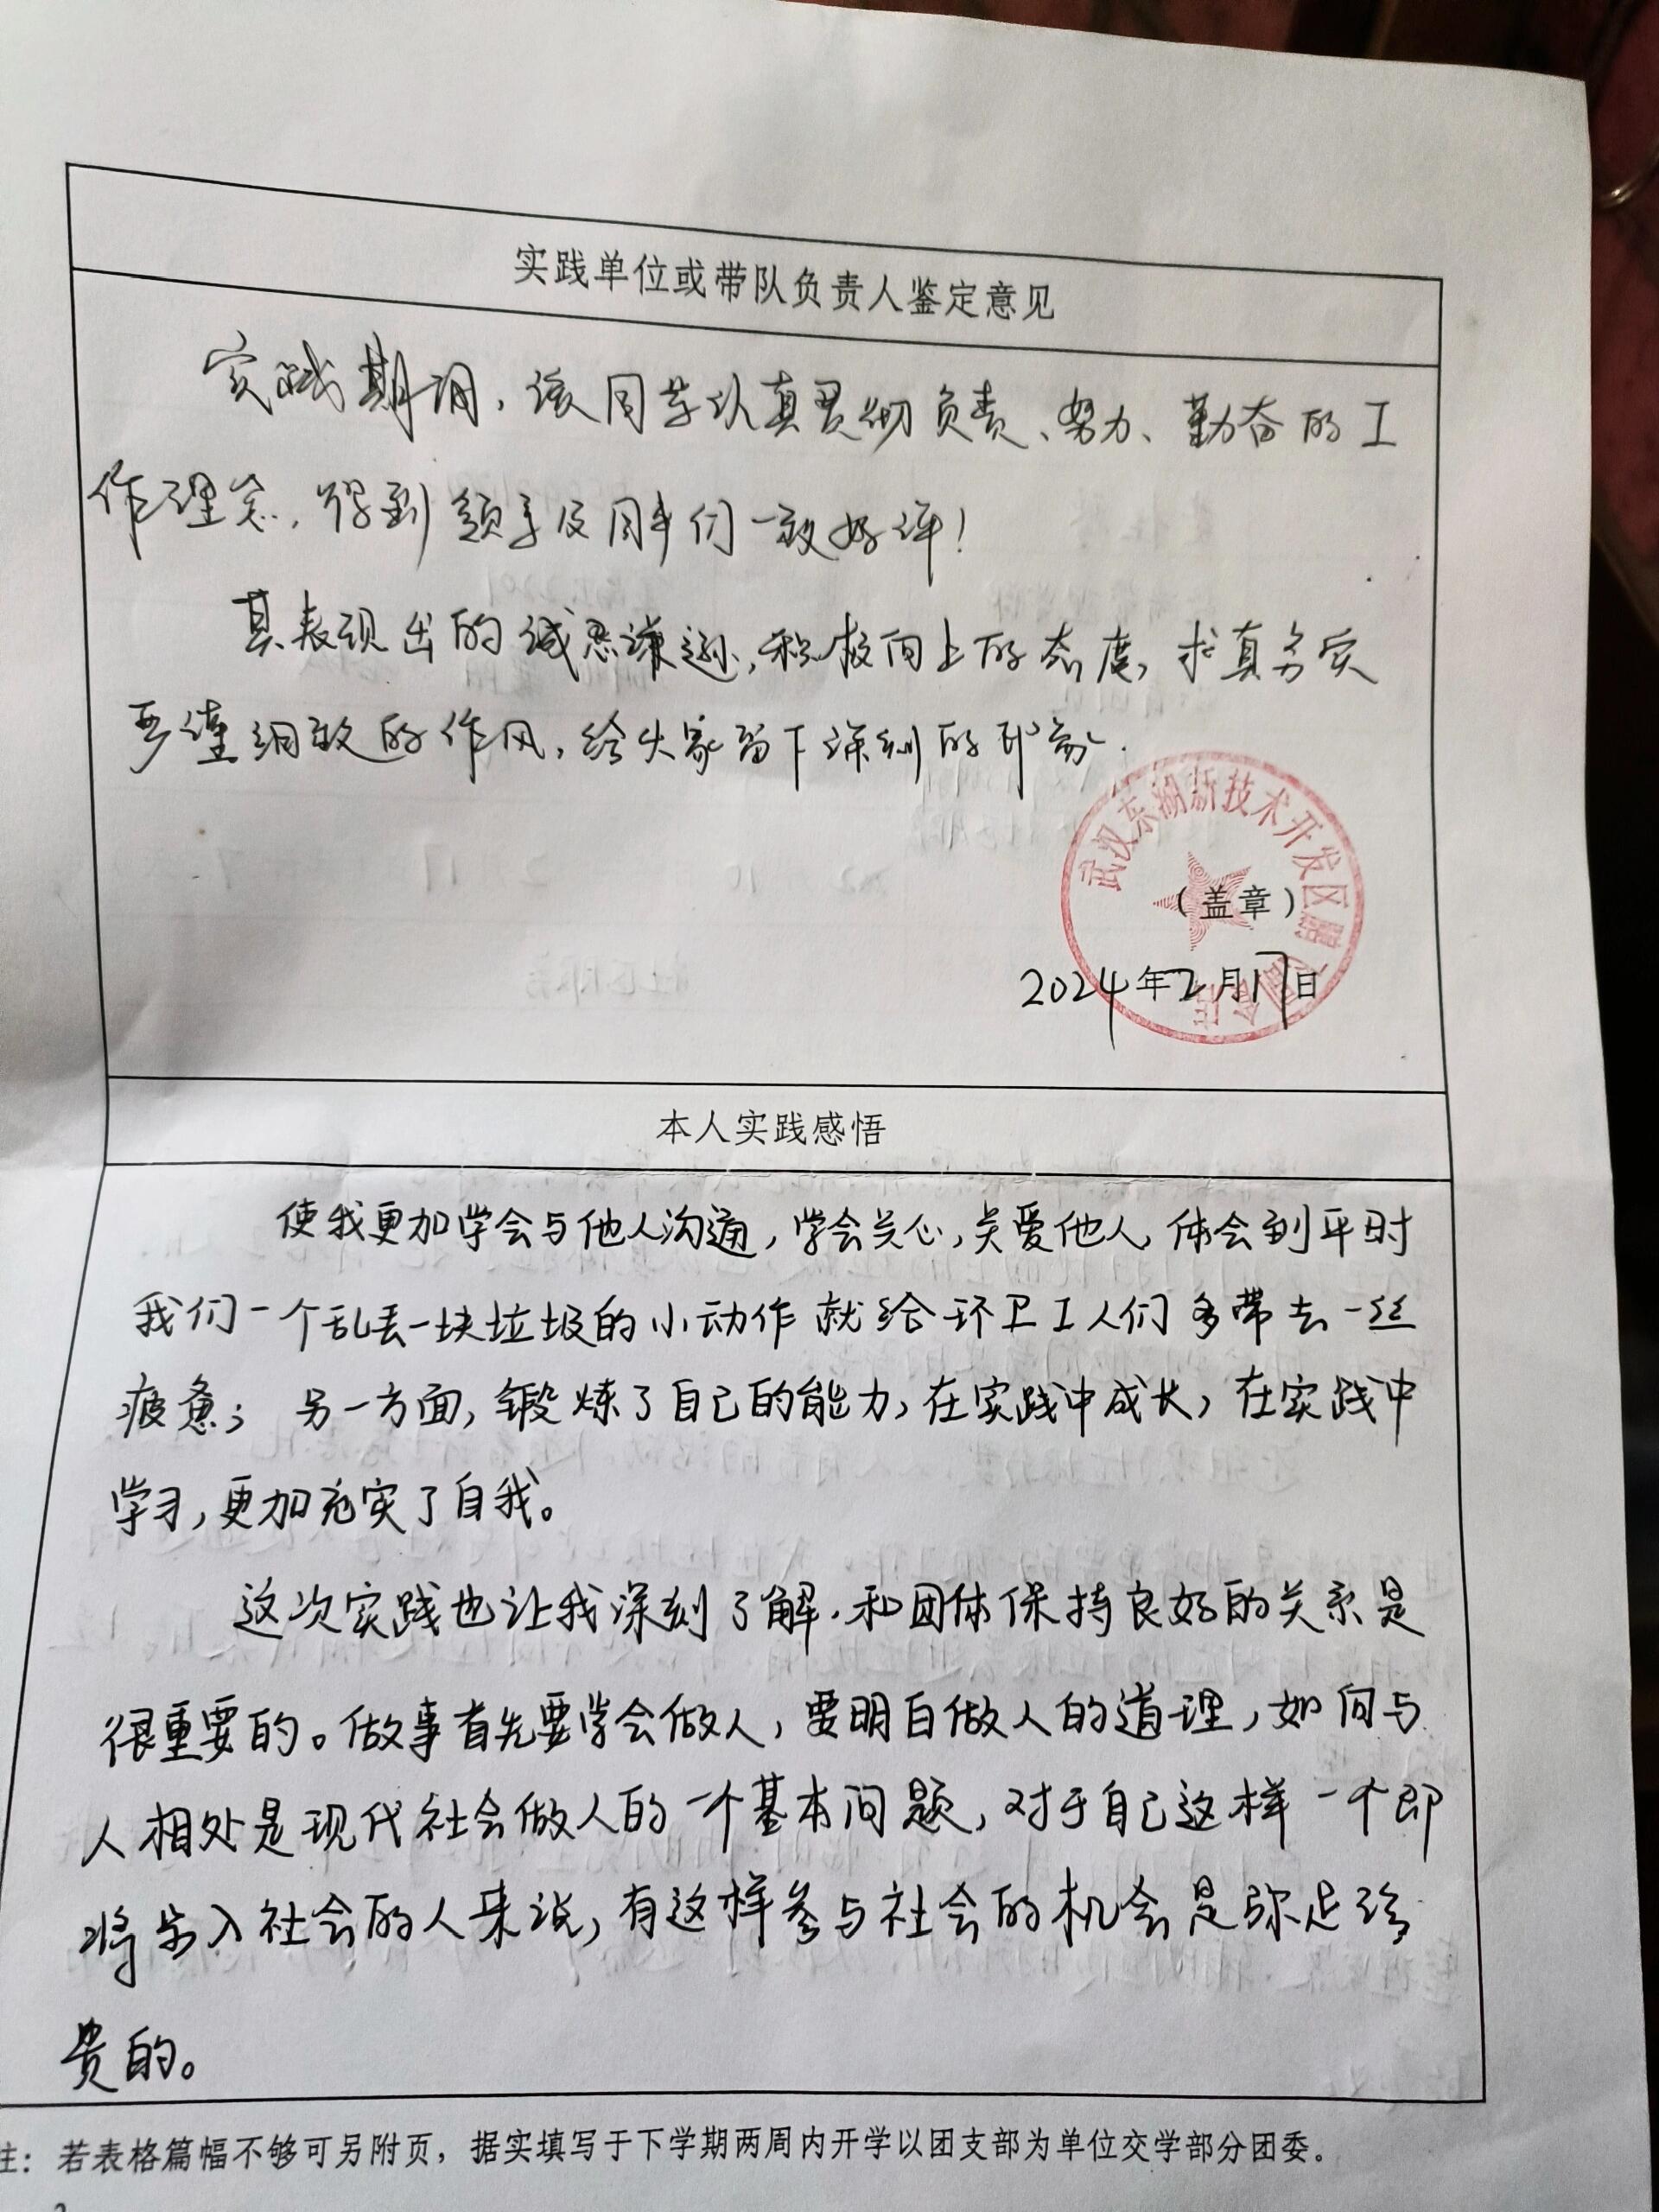 实践单位或带队负责人鉴定意见
实践期间,该同学认真贯彻负责、努力、勤奋的工
作理念,得到领导及同事们一致好评!
其表现出的诚恳谦逊,积极向上的态度,求真务实
严谨细致的作风,给大家留下深刻的印象.
武汉东湖新技术开发区
(盖章)
2024年2月17日
本人实践感悟
使我更加学会与他人沟通,学会关心,关爱他人,体会到平时
我们一个乱丢一块垃圾的小动作就给环卫工人们多带去一丝
疲惫;另一方面,锻炼了自己的能力,在实践中成长,在实践中
学习,更加充实了自我。
这次实践也让我深刻了解.和团体保持良好的关系是
很重要的。做事首先要学会做人,要明白做人的道理,如何与
人相处是现代社会做人的一个基本问题,对于自己这样一个即
将步入社会的人来说,有这样参与社会的机会是弥足珍
贵的。
注:若表格篇幅不够可另附页,据实填写于下学期两周内开学以团支部为单位交学部分团委。